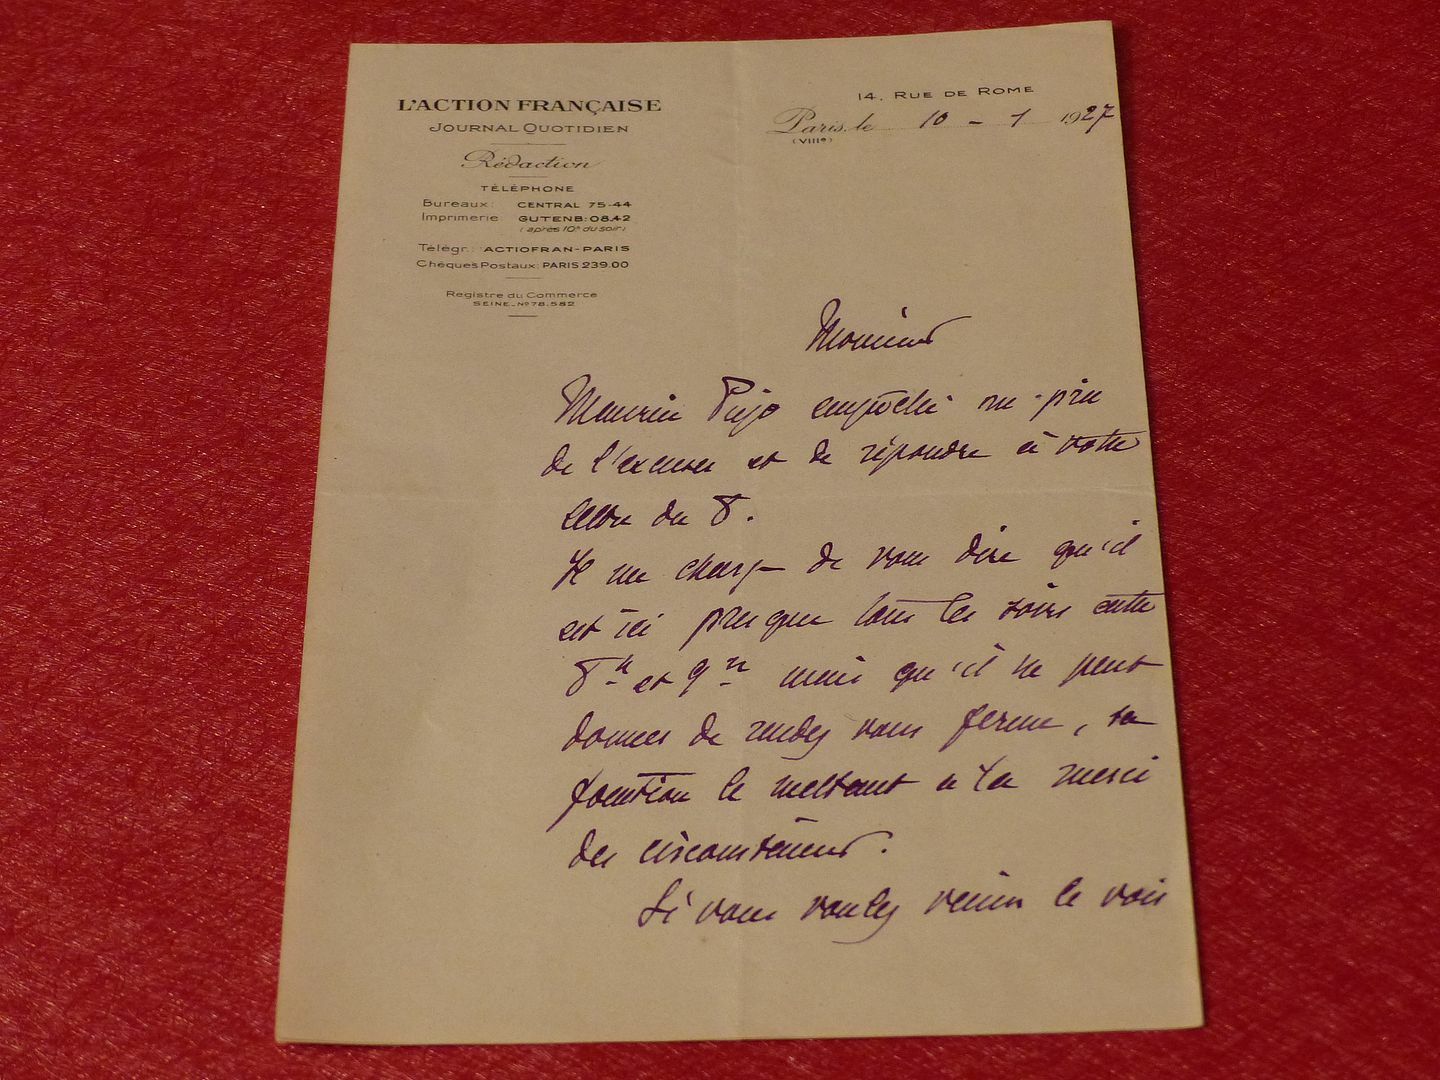 L'ACTION FRANÇAISE
JOURNAL QUOTIDIEN
Rédaction
TÉLÉPHONE
Bureaux: CENTRAL 75-44
Imprimerie GUTENB: 08.42
(après 10h du soir)
Télégr.: ACTIOFRAN-PARIS
Chèques Postaux: PARIS 239.00
Registre du Commerce
SEINE_No 78.582
14, RUE DE ROME
Paris, le 10 - 1 1927
(VIIIe)
Monsieur
Maurice Pujo empêché me prie
de l'excuser et de répondre à votre
lettre du 8.
Il me charge de vous dire qu'il
est ici presque tous les soirs entre
8h et 9h mais qu'il ne peut
donner de rendez vous ferme, sa
fonction le mettant à la merci
des circonstances.
Si vous voulez venir le voir